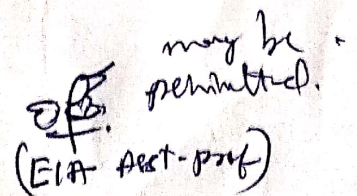 may be
permitted.
(EIA Asst-prof)